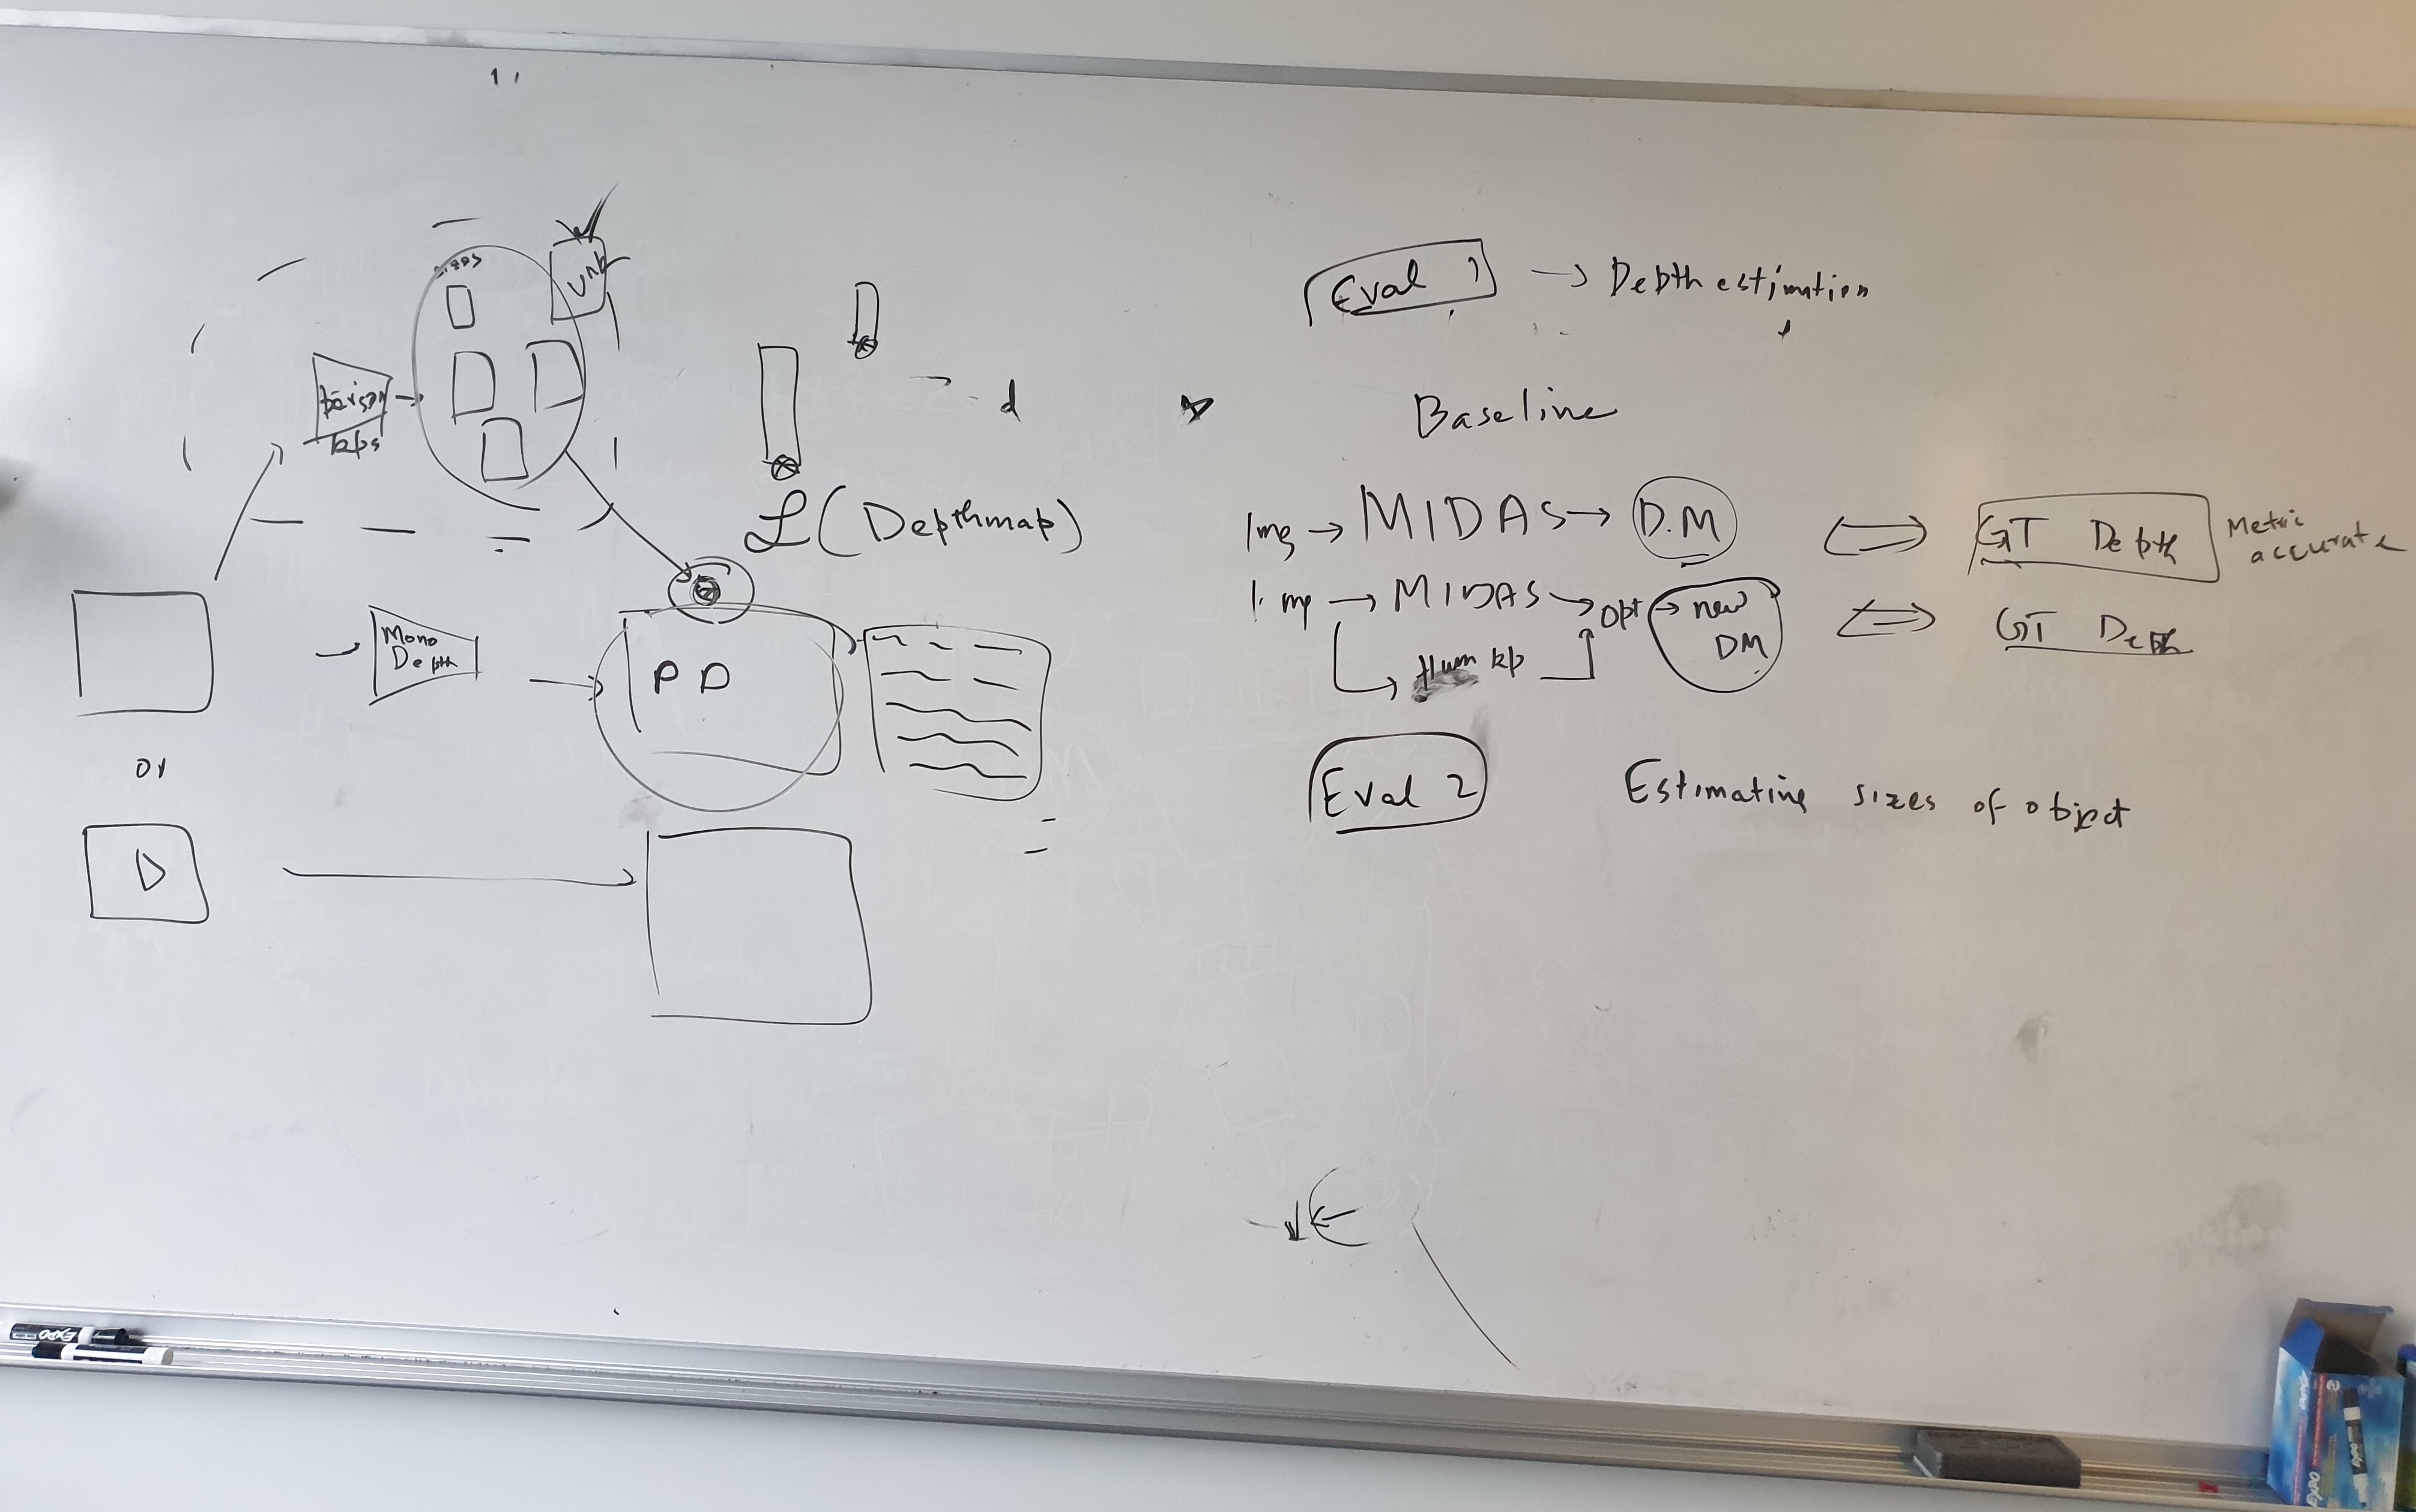 sizes
Unk
person
kps
d
L(Depthmap)
Mono
Depth
PD
or
Eval 1 → Depth estimation
Baseline
Img → MIDAS → D.M ⇔ GT Depth Metric accurate
Img → MIDAS → opt → new DM ⇔ GT Depth
Hum kp
Eval 2 Estimating sizes of object
EXPO
EXPO